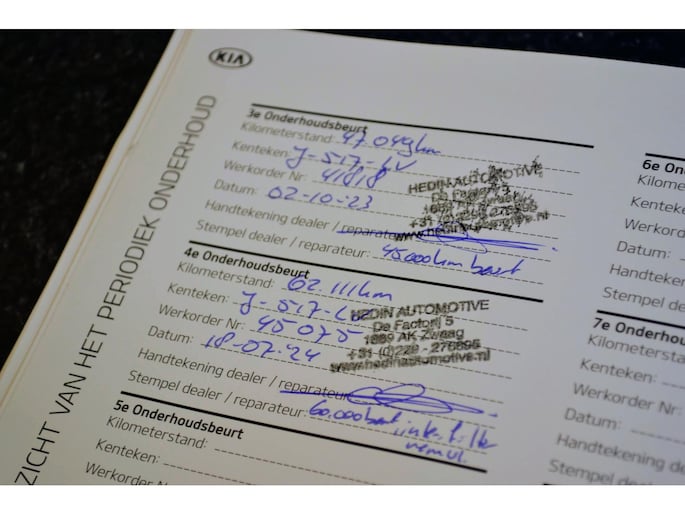 KIA
ZICHT VAN HET PERIODIEK ONDERHOUD
3e Onderhoudsbeurt
Kilometerstand: 47.049km
Kenteken: J-517-LV
Werkorder Nr: 41818
Datum: 02-10-23
Handtekening dealer / reparateur
Stempel dealer / reparateur: 45.000km beurt
HEDIN AUTOMOTIVE
De Factorij
4e Onderhoudsbeurt
Kilometerstand: 62.111km
Kenteken: J-517-L
Werkorder Nr: 45075
Datum: 18-07-24
Handtekening dealer / reparateur
Stempel dealer / reparateur: 60.000 beurt
HEDIN AUTOMOTIVE
De Factorij 5
1689 AK Zwaag
+31 (0)229 - 276895
www.hedinautomotive.nl
5e Onderhoudsbeurt
Kilometerstand:
Kenteken:
Werkorder Nr:
6e On
Kilome
Kenteke
Werkor
Datum:
Handteke
Stempel
7e Onderhou
Kilometersta
Kenteken:
Werkorder N
Datum:
Handtekening
Stempel de